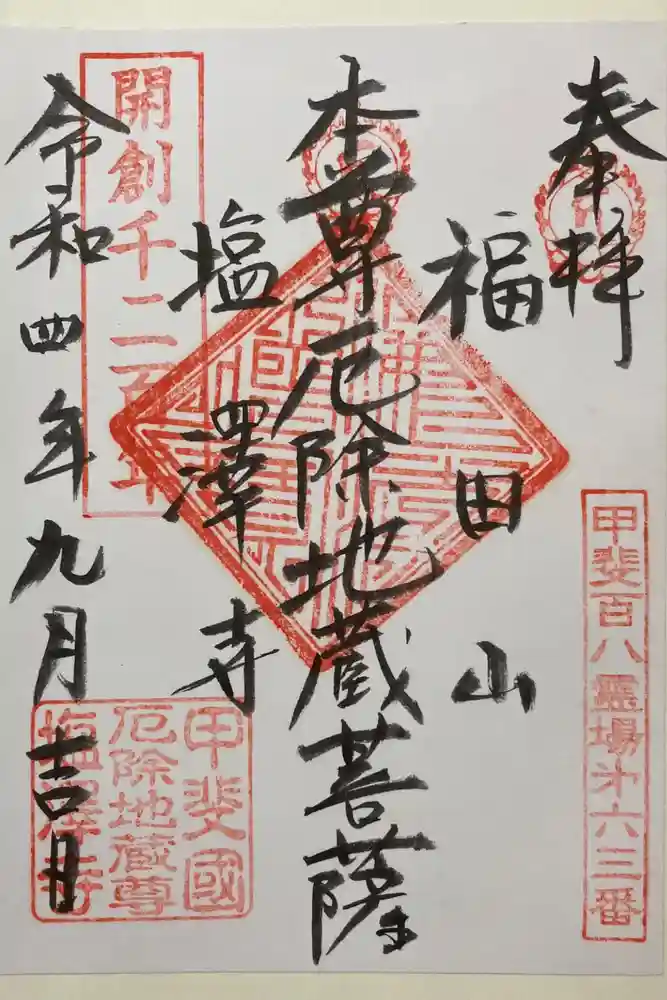 奉拝
甲斐百八霊場第六三番
福田山
本尊厄除地蔵菩薩
塩澤寺
開創千二百年
令和四年九月吉日
甲斐國
厄除地蔵尊
塩澤寺